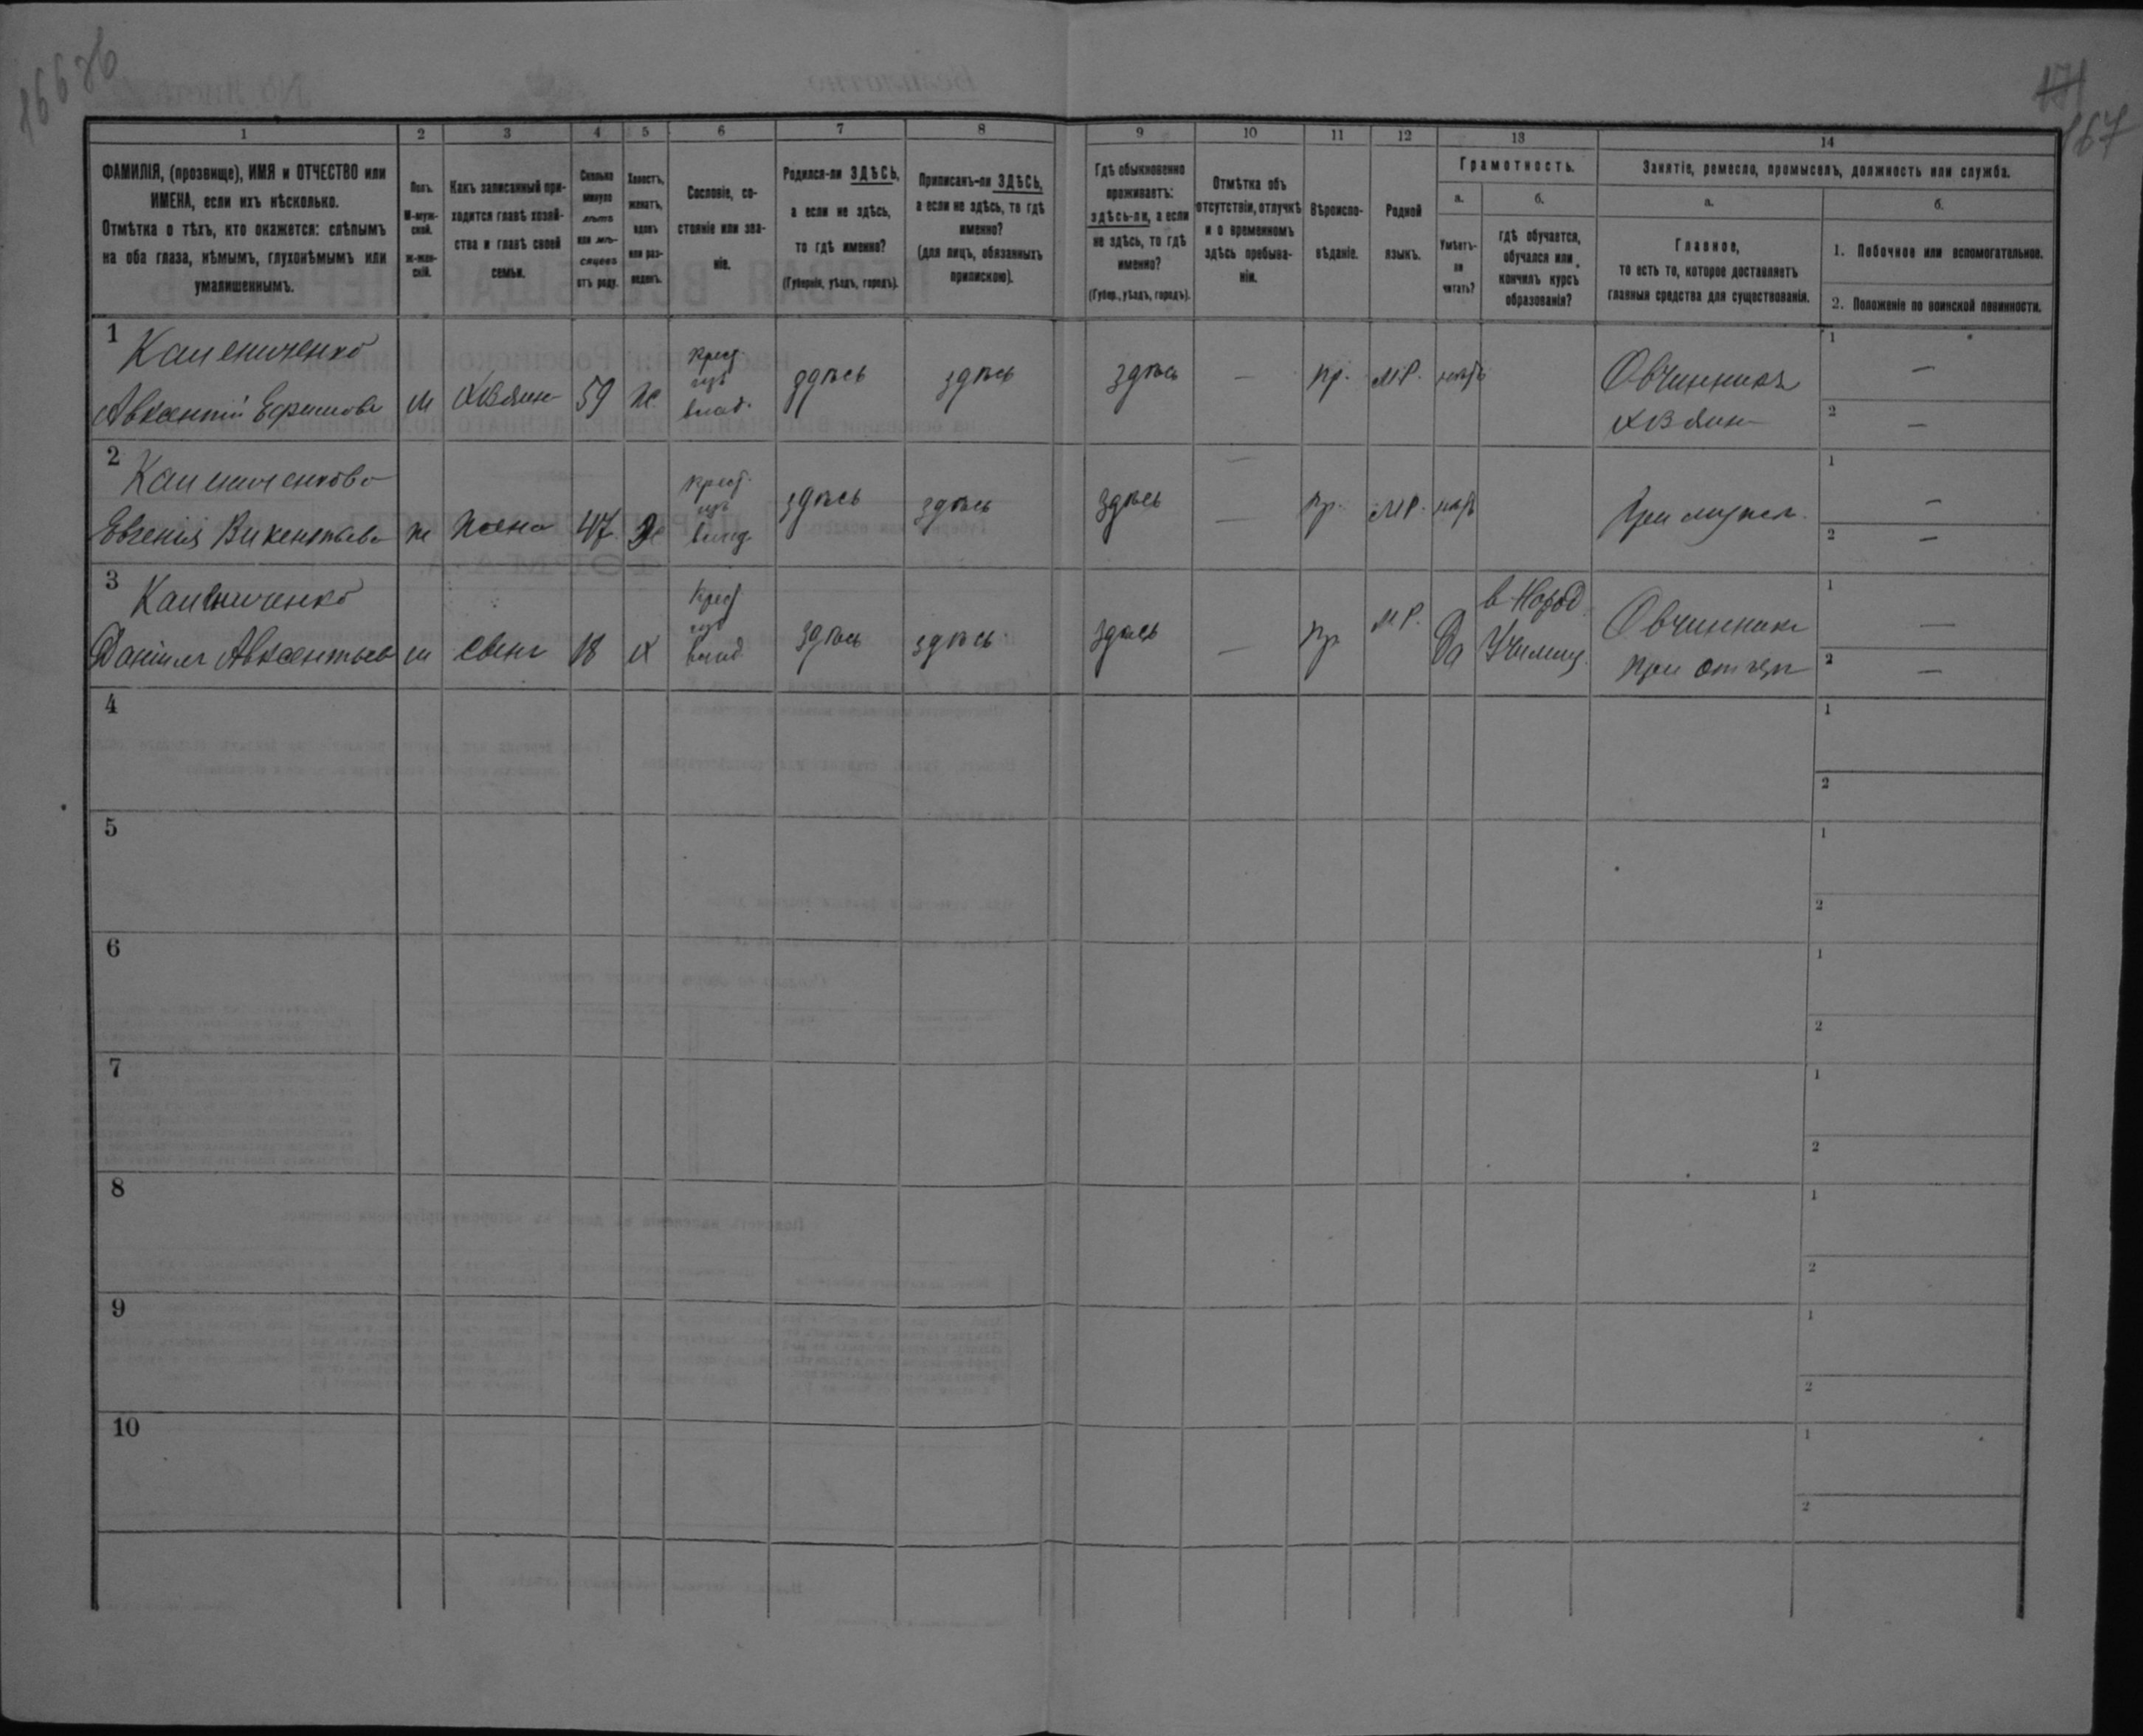 16676
171
167
1 2 3 4 5 6 7 8 9 10 11 12 13 14
ФАМИЛІЯ, (прозвище), ИМЯ и ОТЧЕСТВО или
ИМЕНА, если ихъ нѣсколько.
Отмѣтка о тѣхъ, кто окажется: слѣпымъ
на оба глаза, нѣмымъ, глухонѣмымъ или
умалишеннымъ.
Полъ.
М-муж-
ской.
Ж-жен-
скій.
Какъ записанный при-
ходится главѣ хозяй-
ства и главѣ своей
семьи.
Сколько
минуло
лѣтъ
или мѣ-
сяцевъ
отъ роду.
Холостъ,
женатъ,
вдовъ
или раз-
веденъ.
Сословіе, со-
стояніе или зва-
ніе.
Родился-ли ЗДѢСЬ,
а если не здѣсь,
то гдѣ именно?
(Губернія, уѣздъ, городъ).
Приписанъ-ли ЗДѢСЬ,
а если не здѣсь, то гдѣ
именно?
(для лицъ, обязанныхъ
припискою).
Гдѣ обыкновенно
проживаетъ:
здѣсь-ли, а если
не здѣсь, то гдѣ
именно?
(Губер., уѣздъ, городъ).
Отмѣтка объ
отсутствіи, отлучкѣ
и о временномъ
здѣсь пребыва-
ніи.
Вѣроиспо-
вѣданіе.
Родной
языкъ.
Грамотность.
а.
Умѣетъ-
ли
читать?
б.
гдѣ обучается,
обучался или
кончилъ курсъ
образованія?
Занятіе, ремесло, промыселъ, должность или служба.
а.
Главное,
то есть то, которое доставляетъ
главныя средства для существованія.
б.
1. Побочное или вспомогательное.
2. Положеніе по воинской повинности.
1
Каменченко
Авксентій Ефимовъ
м
хозяин
59
ж
крест
изъ
влад.
здѣсь
здѣсь
здѣсь
—
пр.
М.Р.
нѣтъ
Овчинникъ
хозяин
1 —
2 —
2
Евгенія Викентьева
ж
жена
47
ж
крест.
изъ
влад.
здѣсь
здѣсь
здѣсь
—
пр.
М.Р.
нѣтъ
при мужѣ
1 —
2 —
3
Даніилъ Авксентьев
м
сынъ
18
х
крест
изъ
влад
здѣсь
здѣсь
здѣсь
—
пр
М.Р.
Да
в Народ.
Училищ.
Овчинникъ
при отцѣ
1 —
2 —
4
1
2
5
1
2
6
1
2
7
1
2
8
1
2
9
1
2
10
1
2